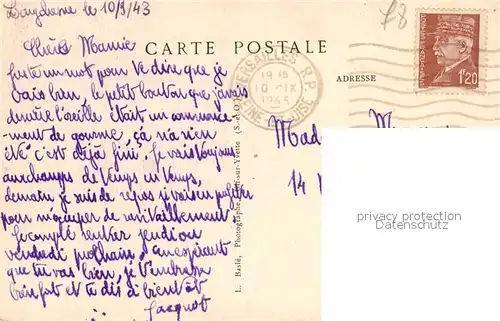 le 10/9/43
f8
Chère Mamie
CARTE POSTALE
ADRESSE
VERSAILLES R.P.
19 15
10 IX
1943
SEINE ET OISE
1F20
juste un mot pour te dire que je
vais bien. le petit bouton que j'avais
derrière l'oreille était un commence
-ment de gourme, ça n'a rien
été c'est déjà fini. Je vais toujours
aux champs de temps en temps,
demain je suis de repos je vais en profiter
pour m'occuper de ravitaillement
Je compte rentrer jeudi ou
vendredi prochain. en espérant
que tu vas bien, je t'embrasse
bien fort et te dis à bientôt
Jacquot
Mad
14
L. Baslé, Photographe
privacy protection
Datenschutz